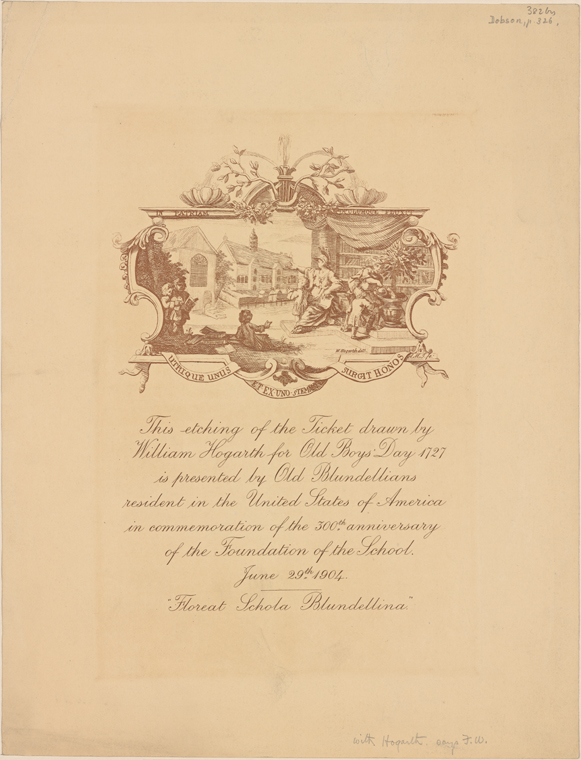 382by
Dobson, p. 326.
IN PATRIAM POPULUMQUE FLUXIT
W. Hogarth del.
UTRIQUE UNUS ET EX UNO STEMMATE SURGIT HONOS
This etching of the Ticket drawn by
William Hogarth for Old Boys' Day 1727
is presented by Old Blundellians
resident in the United States of America
in commemoration of the 300th anniversary
of the Foundation of the School.
June 29th 1904.
"Floreat Schola Blundellina."
with Hogarth. says F.W.